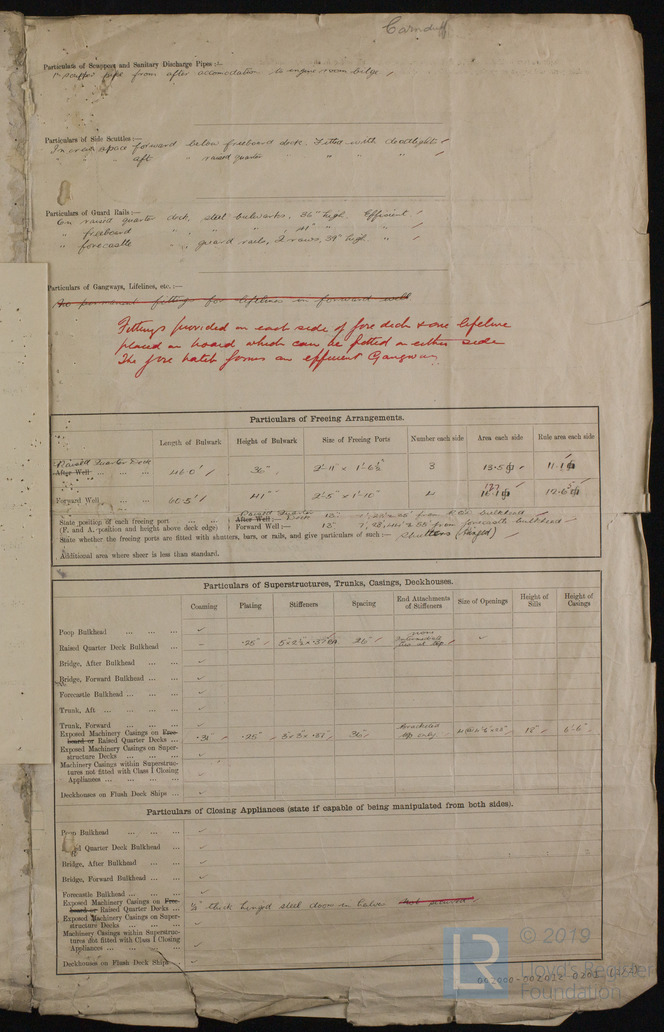 Carnduff
Particulars of Scuppers and Sanitary Discharge Pipes :—
scupper pipe from after accomodation to engine room bilge
Particulars of Side Scuttles:—
In crew space forward below freeboard deck. Fitted with deadlights
" " " aft " raised quarter " " " "
Particulars of Guard Rails:—
On raised quarter deck, steel bulwarks, 36" high. Efficient
" freeboard " , " " , 41" " "
" forecastle " , guard rails, 2 rows, 39" high. "
Particulars of Gangways, Lifelines, etc.:—
No permanent fittings for lifelines in forward well
Fittings provided on each side of fore deck & one lifeline
placed on board which can be fitted on either side
The fore hatch forms an efficient Gangway.
Particulars of Freeing Arrangements.
Length of Bulwark Height of Bulwark Size of Freeing Ports Number each side Area each side Rule area each side
Raised Quarter Deck
After Well 46.0' 36" 2'-11" x 1'-6½" 3 13.5 11.1
Forward Well 60.5' 41" 2'-5" x 1'-10" 4 17.7 12.6
State position of each freeing port Raised Quarter Deck After Well :— from R.Q.D. bulkhead
(F. and A. position and height above deck edge) Forward Well :— from forecastle bulkhead
State whether the freeing ports are fitted with shutters, bars, or rails, and give particulars of such :— Shutters (hinged)
Additional area where sheer is less than standard.
Particulars of Superstructures, Trunks, Casings, Deckhouses.
Coaming Plating Stiffeners Spacing End Attachments of Stiffeners Size of Openings Height of Sills Height of Casings
Poop Bulkhead
Raised Quarter Deck Bulkhead .25" 26"
Bridge, After Bulkhead
Bridge, Forward Bulkhead
Forecastle Bulkhead
Trunk, Aft
Trunk, Forward
Exposed Machinery Casings on Free-
board or Raised Quarter Decks .25" 36" bracketed top only 18" 6'-6"
Exposed Machinery Casings on Super-
structure Decks
Machinery Casings within Superstruc-
tures not fitted with Class I Closing
Appliances
Deckhouses on Flush Deck Ships
Particulars of Closing Appliances (state if capable of being manipulated from both sides).
Poop Bulkhead
Quarter Deck Bulkhead
Bridge, After Bulkhead
Bridge, Forward Bulkhead
Forecastle Bulkhead
Exposed Machinery Casings on Free-
board or Raised Quarter Decks ¼" thick hinged steel doors in halves
Exposed Machinery Casings on Super-
structure Decks
Machinery Casings within Superstruc-
tures not fitted with Class I Closing
Appliances
Deckhouses on Flush Deck Ships
LR
© 2019
Lloyd's Register
Foundation